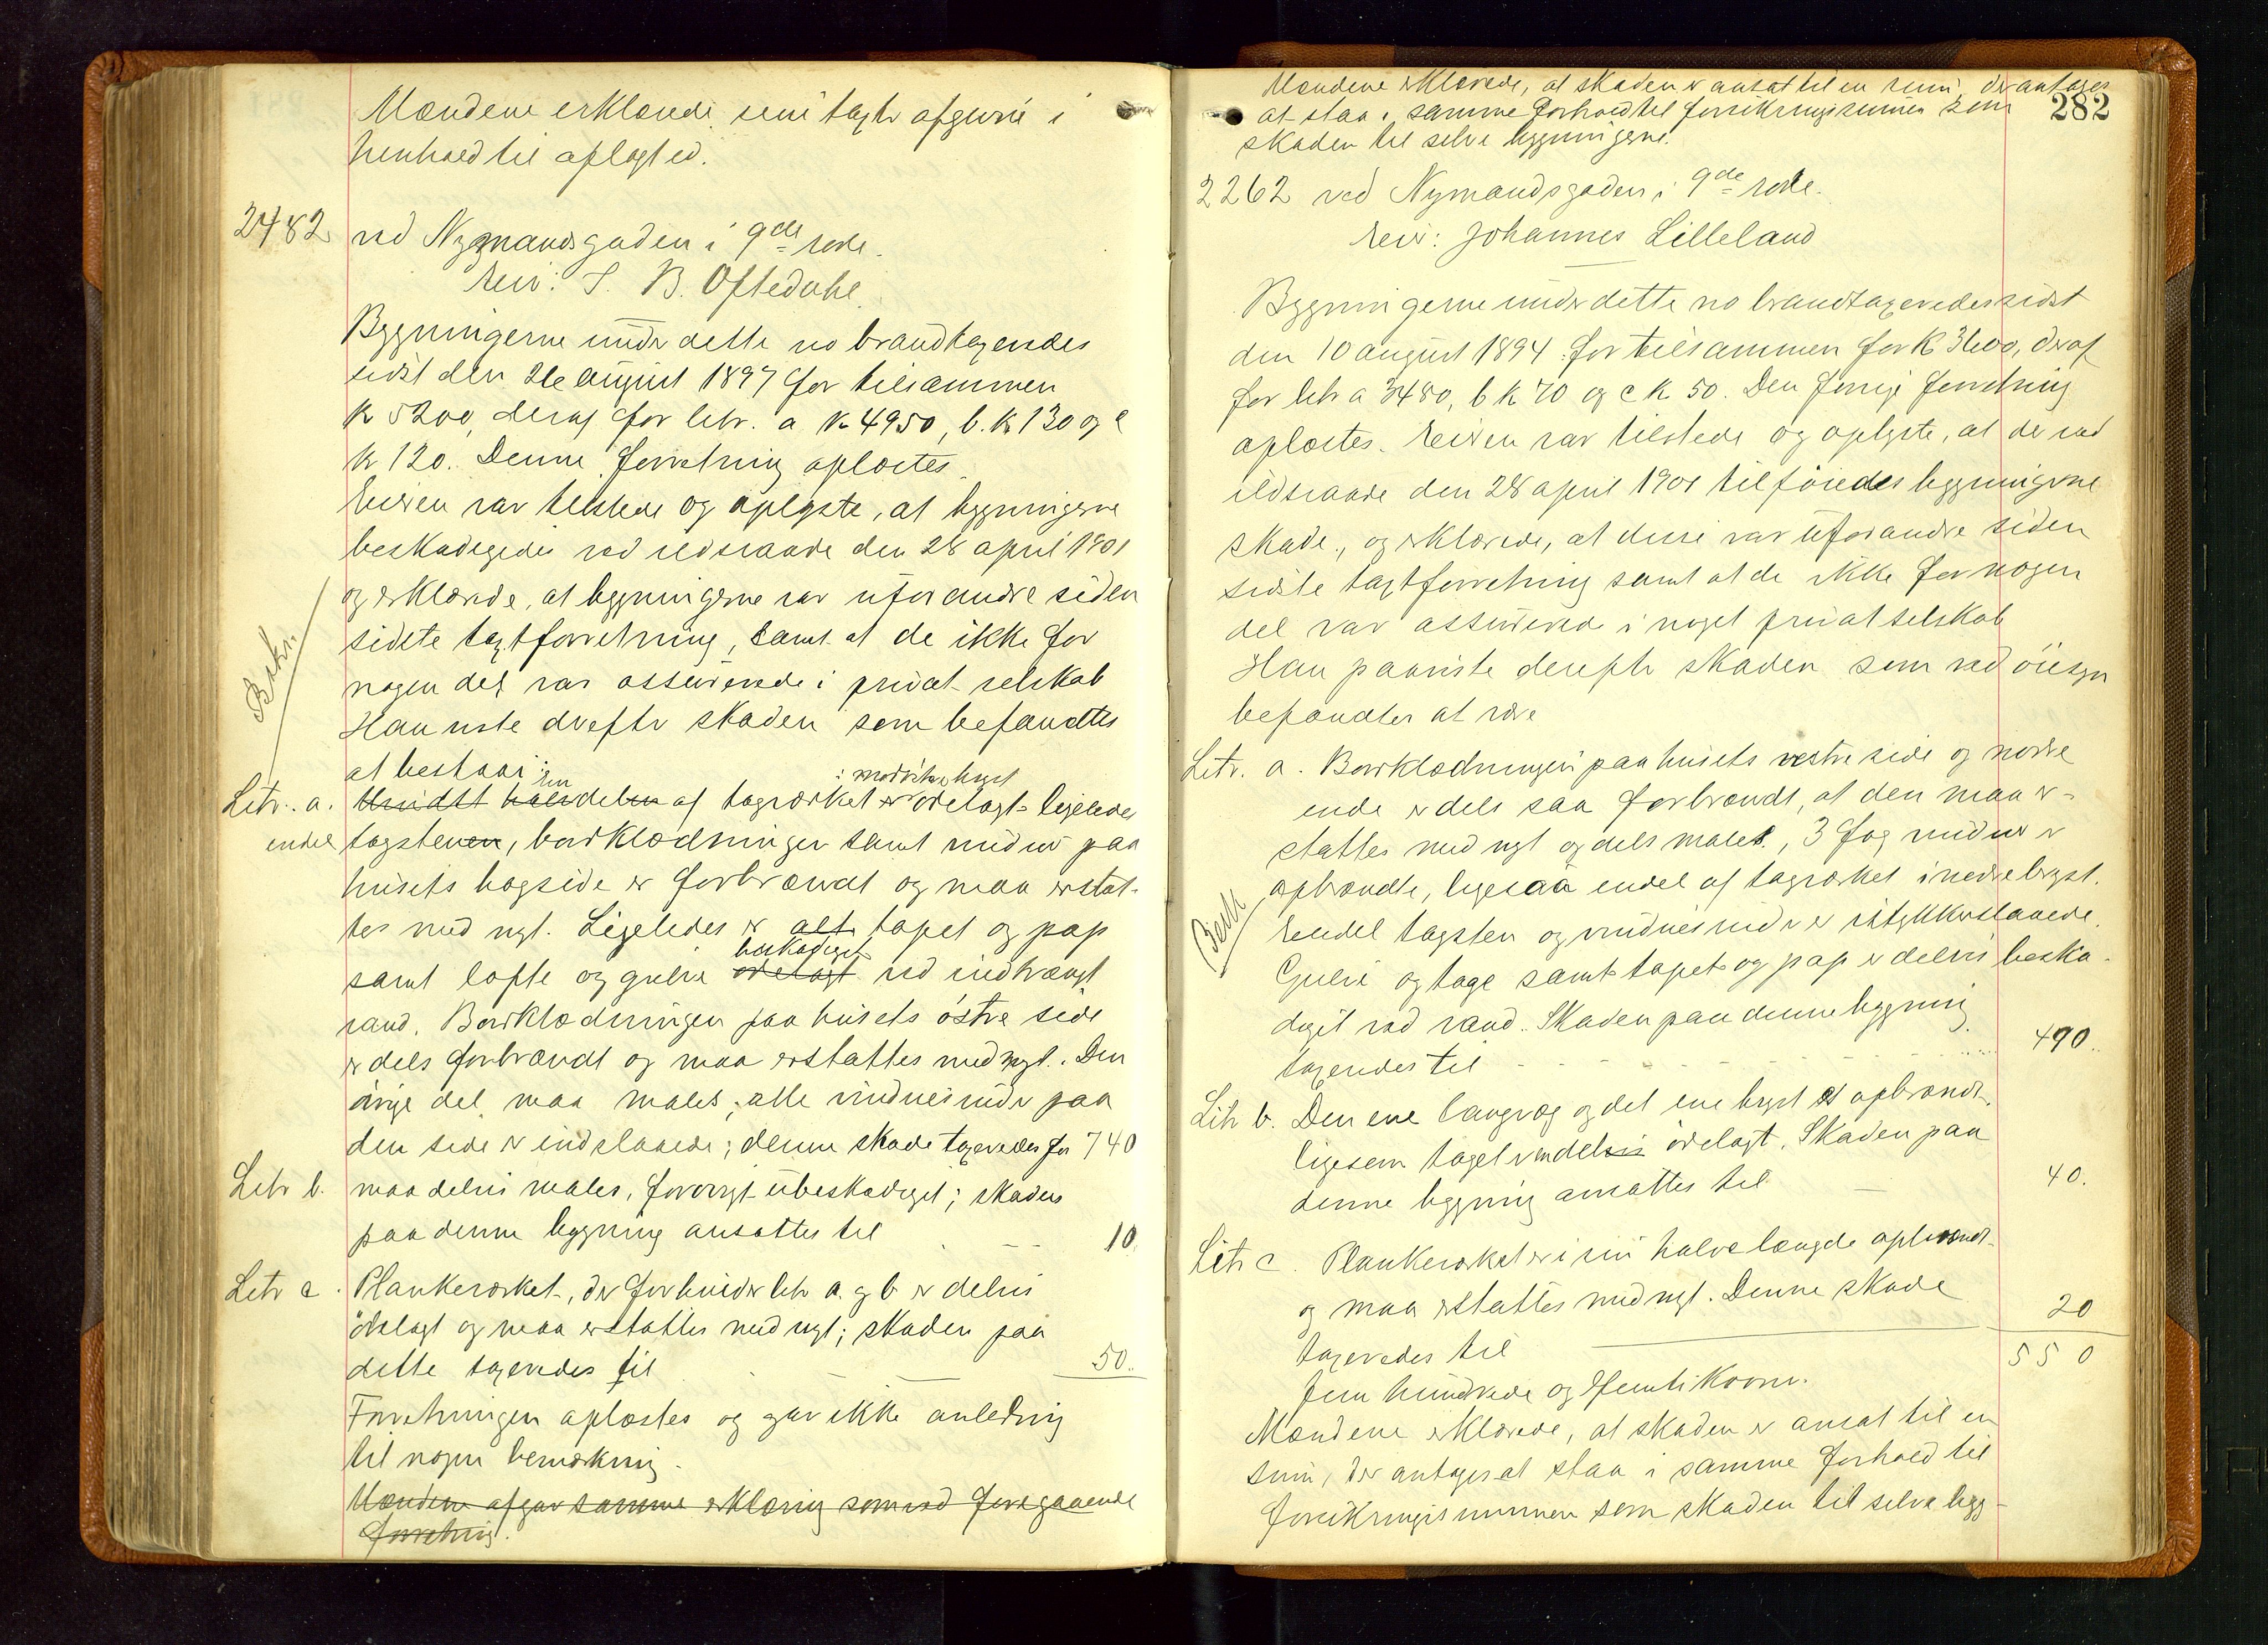 Mændene erklærede sine taxter afgivne i
henhold til aflagt ed.
2482 ved Nymandsgaden i 9de rode.
Eier: S. B. Oftedahl.
Bygningerne under dette no brandtaxeredes
sidst den 26 august 1897 for tilsammen
kr 5200, deraf for litr. a kr 4950, b. kr 130 og c
kr 120. Denne forretning oplæstes.
Eieren var tilstede og oplyste, at bygningerne
beskadigedes ved ildsvaade den 28 april 1901
og erklærede, at bygningerne var uforandre siden
sidste taxtforretning, samt at de ikke for
nogen del var assurerede i privat selskab
Han viste derefter skaden som befandtes
at bestaa i:
Litr. a. af tagværket i nordvestre bryst ødelagt ligeledes
endel tagsten, bordklædninger samt vinduer paa
husets bagside er forbrændt og maa erstat-
tes med nyt. Ligeledes er alt tapet og pap
beskadiget
samt lofte og gulve ødelagt ved indtrængt
vand. Bordklædningen paa husets östre side
er dels forbrændt og maa erstattes med nyt. Den
övrige del maa males; alle vinduesruder paa
den side er indslaaede; denne skade taxeredes for 740
Litr b. maa delvis males, forövrigt ubeskadiget; skaden
paa denne bygning ansattes til 10.
Litr c. Plankeværket, der forbinder litr a. og b er delvis
ödelagt og maa erstattes med nyt; skaden paa
dette taxeredes til 50.
Forretningen oplæstes og gav ikke anledning
til nogen bemærkning.
Mændene afgav samme erklæring som ved foregaaende
forretning.
Mændene erklærede, at skaden er ansat til en sum, der antages
at staa i samme forhold til forsikringssummen som
skaden til selve bygningerne.
282
2262 ved Nymandsgaden i 9de rode.
Eier: Johannes Lilleland
Bygningerne under dette no brandtaxeredes sidst
den 10 august 1894 for tilsammen for kr 3600, deraf
for litr a 3480, b kr 70 og c kr 50. Den forrige forretning
oplæstes. Eieren var tilstede og oplyste, at der ved
ildsvaade den 28 april 1901 tilföiedes bygningerne
skade, og erklærede, at disse var uforandre siden
sidste taxtforretning samt at de ikke for nogen
del var assurerede i noget privat selskab
Han paaviste derefter skaden som ved öiesyn
befandtes at være
Litr. a. Bordklædningen paa husets vestre side og nordre
ende er dels saa forbrændt, at den maa er-
stattes med nyt og dels males, 3 fag vinduer er
opbrændte, ligesaa endel af tagværket i nedre bryst.
Endel tagsten og vinduesruder er istykkerslaaede.
Gulve og tage samt tapet og pap er delvis beska-
diget ved vand. Skaden paa denne bygning
taxeredes til 490.
Litr b. Den ene langvæg og det ene bryst er opbrændt,
ligesom taget er endel ödelagt. Skaden paa
denne bygning ansattes til 40.
Litr c. Plankeværket er i sin halve længde opbrændt
og maa erstattes med nyt. Denne skade
taxeredes til 20
550
fem hundrede og femti kroner.
Mændene erklærede, at skaden er ansat til en
sum, der antages at staa i samme forhold til
forsikringssummen som skaden til selve bygg-